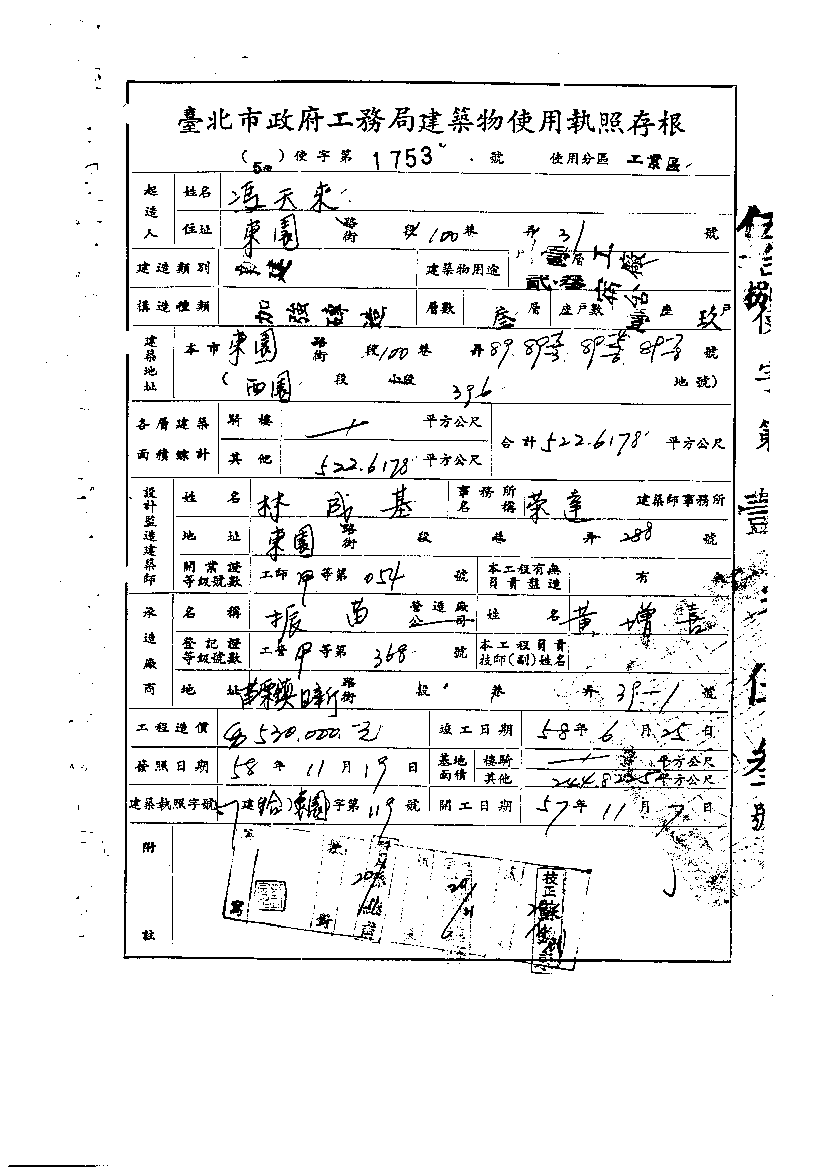 臺北市政府工務局建築物使用執照存根
(58)使字第 1753 號 使用分區 工業區
起造人 姓名 馮天來
住址 東園 路街 段 100 巷 弄 31 號
建造類別 建築物用途 壹層工廠
貳.叁 公寓
構造種類 加強磚造 層數 叁 層 座戶數 壹 座 玖 戶
建築地址 本市 東園 路街 段 100 巷 弄 89. 號
(西園 段 小段 396 地號)
各層建築面積總計 騎樓 平方公尺
其他 522.6178 平方公尺 合計 522.6178 平方公尺
設計監造建築師 姓名 林成基 事務所名稱 榮達 建築師事務所
地址 東園 路街 段 巷 弄 288 號
開業證等級號數 工師 甲 等第 054 號 本工程有無負責監造 有 無
承造廠商 名稱 振苗 營造廠公司 姓名 黃增喜
登記證等級號數 工登 甲 等第 368 號 本工程負責技師(副)姓名
地址 苗栗鎮日新 路街 段 巷 弄 39-1 號
工程造價 530,000.元 竣工日期 58年 6月 25日
發照日期 58年 11月 19日 基地面積 樓騎 平方公尺
其他 平方公尺
建築執照字號 建 (東園)字第 119 號 開工日期 57年 11月 7日
附註
校正
校對